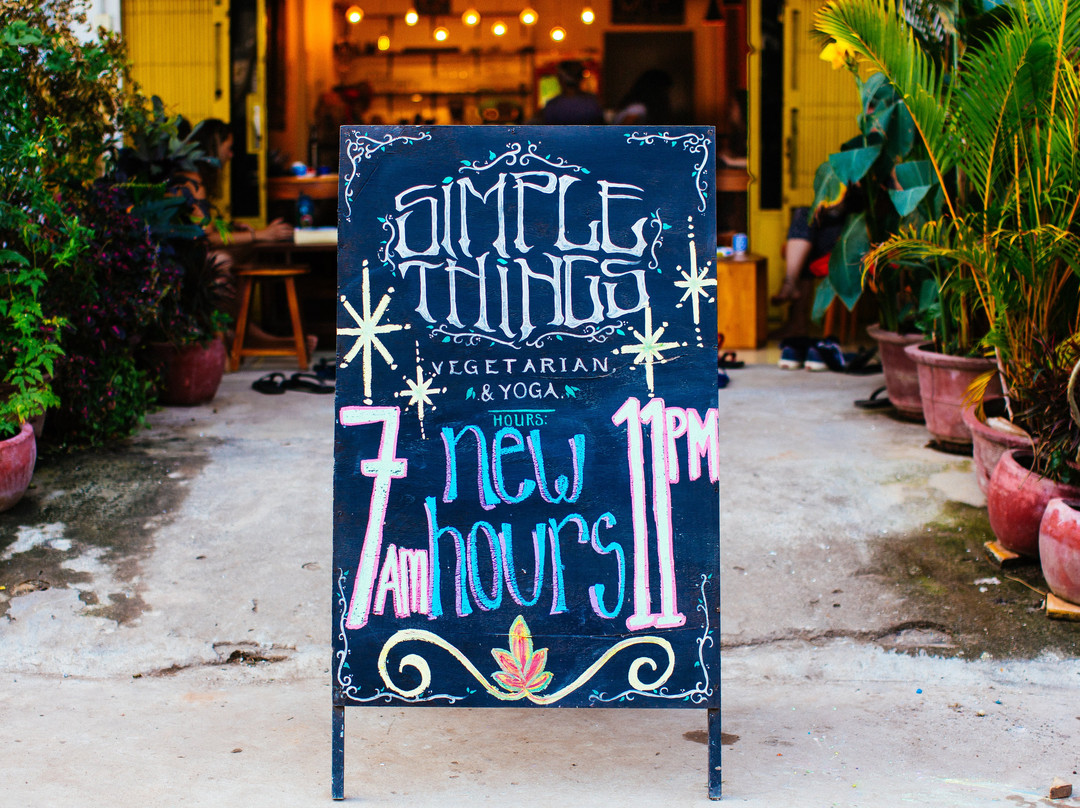 SIMPLE
THINGS
VEGETARIAN
& YOGA.
HOURS:
7AM new hours 11PM